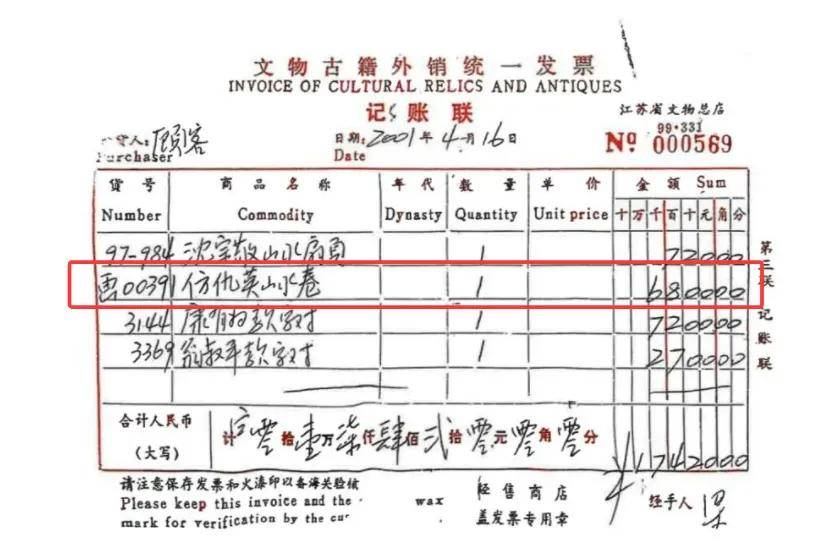 文物古籍外销统一发票
INVOICE OF CULTURAL RELICS AND ANTIQUES
记账联
江苏省文物总店
99·331
货人: 顾客
Purchaser
日期: 2001年4月16日
Date
№ 000569
货号 商品名称 年代 数量 单价 金额 Sum
Number Commodity Dynasty Quantity Unit price 十万千百十元角分
97-984 沈宗敬山水扇页 1 72000
画00391 仿仇英山水卷 1 680000
3144 康有为款字对 1 720000
3369 翁叔平款字对 1 270000
第三联 记账联
合计人民币
(大写)
计 零拾壹万柒仟肆佰贰拾零元零角零分 ¥1742000
请注意保存发票和火漆印以备海关验核
Please keep this invoice and the wax
mark for verification by the
经售商店
盖发票专用章
经手人